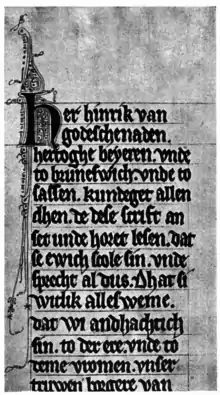 her hinrik van
godeschenaden.
hertoghe beyeren. vnde
to bruneswich. vnde to
sassen. kundeget allen
dhen. de dese scrift an
set unde horet lesen. dat
se ewich scole sin. vnde
sprecht al dus. Dhat si
witlik alles weme.
dat wi andhachtich
sin. to der ere. vnde to
deme vromen. vnser
truwen borgere van